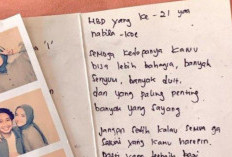 HBD yang ke-21 yaa
nabila-koe
semoga kedepanya kamu
bisa lebih bahagia, banyak
senyum, banyak duit.
dan yang paling penting
banyak yang sayang
Jangan sedih kalau semua ga
sesuai yang kamu harepin.